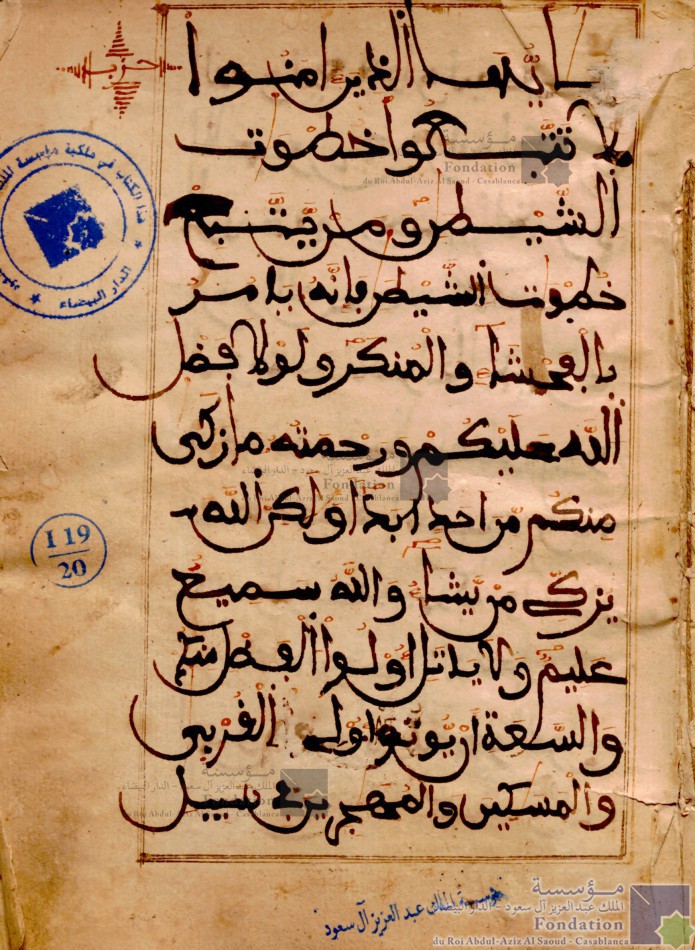 يأيها الذين امنوا
حزب
لا تتبعوا خطوت
الشيطن ومن يتبع
خطوت الشيطن فإنه يامر
بالفحشا والمنكر ولولا فضل
الله عليكم ورحمته ما زكى
منكم من احد ابدا ولكن الله
يزكي من يشا والله سميع
عليم ولا ياتل اولوا الفضل منكم
والسعة ان يوتوا اولي القربى
والمسكين والمهجرين في سبيل
هذا الكتاب في ملكية مؤسسة
الدار البيضاء
I 19
20
مؤسسة الملك عبد العزيز آل سعود
مؤسسة
الملك عبد العزيز آل سعود - الدار البيضاء
Fondation
du Roi Abdul-Aziz Al Saoud - Casablanca